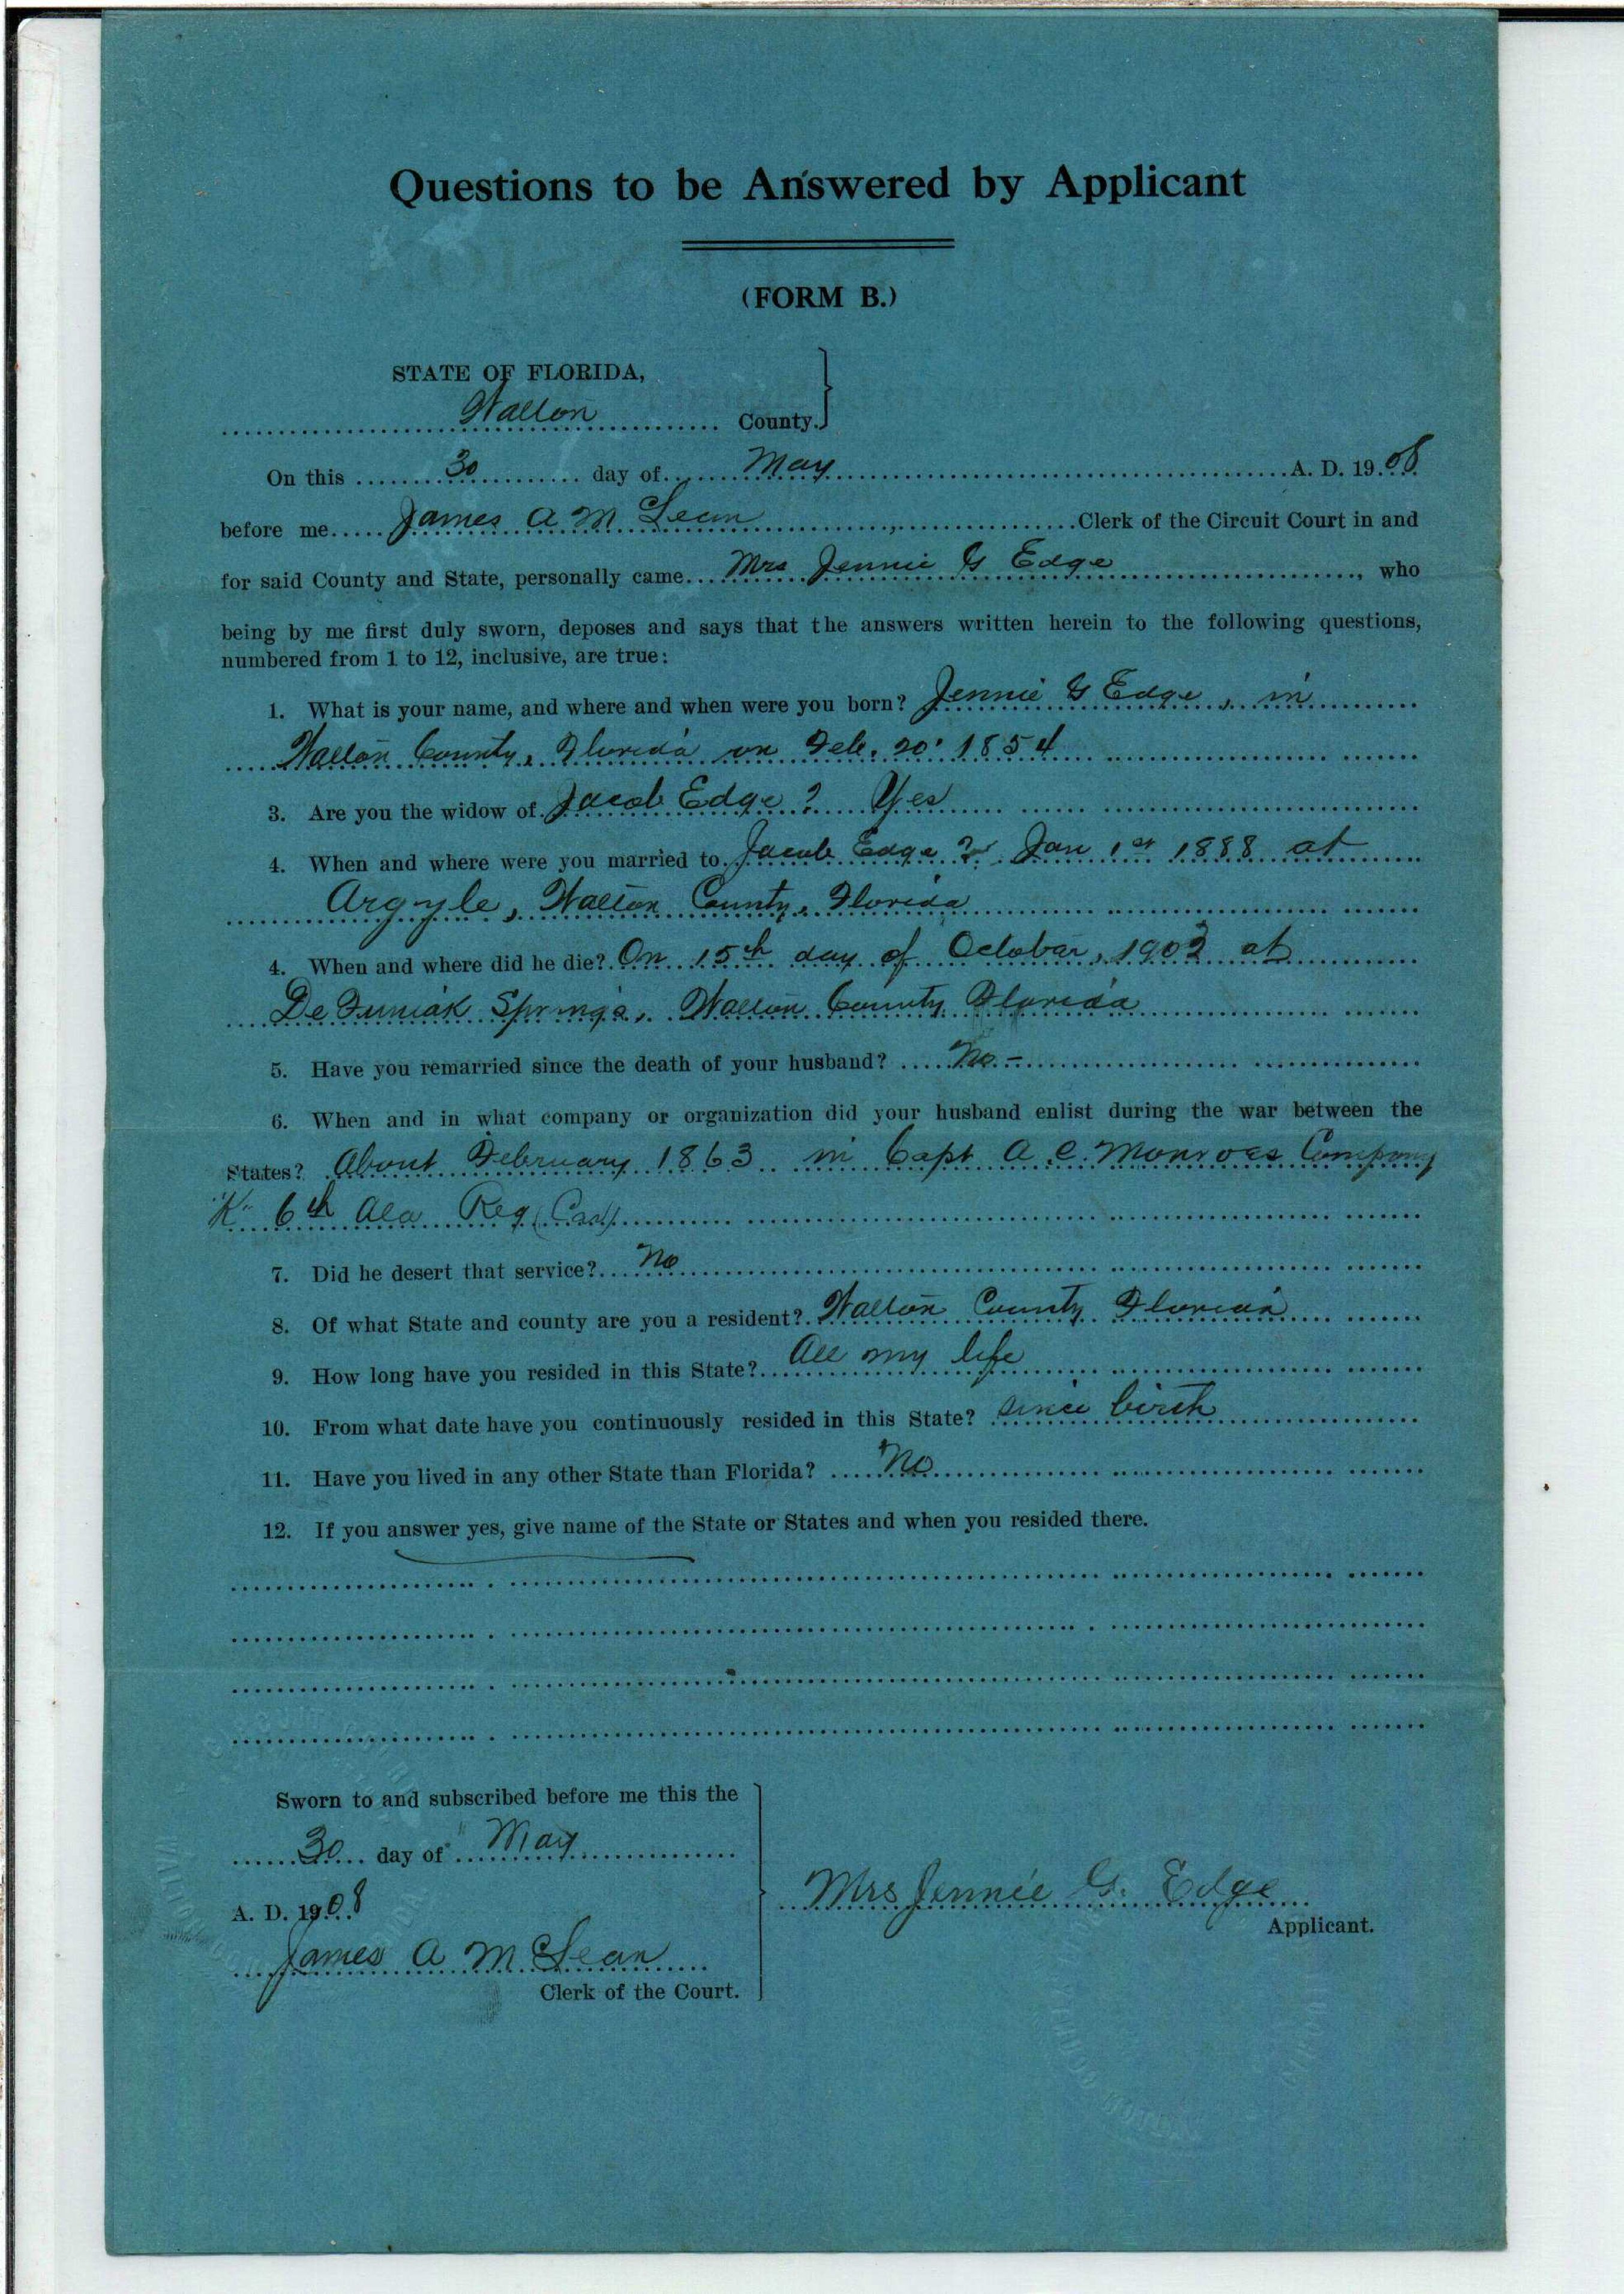 Questions to be Answered by Applicant
(FORM B.)
STATE OF FLORIDA,
Walton County.
On this 30 day of May A. D. 1908
before me James A. McLean, Clerk of the Circuit Court in and
for said County and State, personally came Mrs Jennie G Edge, who
being by me first duly sworn, deposes and says that the answers written herein to the following questions,
numbered from 1 to 12, inclusive, are true:
1. What is your name, and where and when were you born? Jennie G Edge, in
Walton County, Florida on Feb. 20. 1854
3. Are you the widow of Jacob Edge? Yes
4. When and where were you married to Jacob Edge? Jan 1st 1888 at
Argyle, Walton County, Florida
4. When and where did he die? On 15th day of October, 1902 at
De Funiak Springs, Walton County Florida
5. Have you remarried since the death of your husband? No-
6. When and in what company or organization did your husband enlist during the war between the
States? About February 1863 in Capt A. C. Monroes Company
"K" 6th Ala Reg (Cav)
7. Did he desert that service? No
8. Of what State and county are you a resident? Walton County Florida
9. How long have you resided in this State? All my life
10. From what date have you continuously resided in this State? Since birth
11. Have you lived in any other State than Florida? No
12. If you answer yes, give name of the State or States and when you resided there.
Sworn to and subscribed before me this the
30 day of May
A. D. 1908
James A McLean
Clerk of the Court.
Mrs Jennie G. Edge
Applicant.